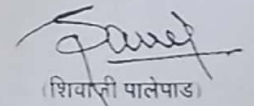 (शिवाजी पालेपाड)